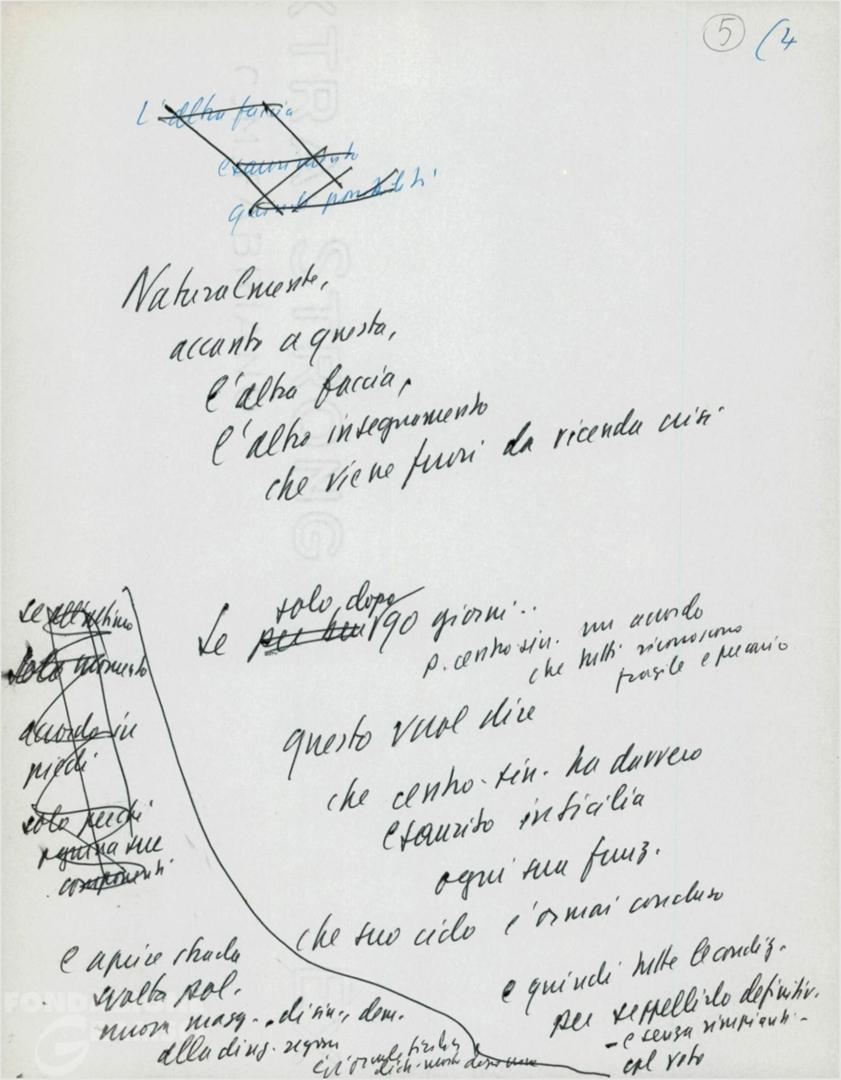 5 (4
L'altra faccia
esaurimento
quindi possibilità
Naturalmente,
accanto a questa,
l'altra faccia,
l'altro insegnamento
che viene fuori da vicenda crisi
se all'ultimo
solo momento
accordo in
piedi
solo perché
ognuna sue
componenti
solo, dopo
Se per un 90 giorni..
p. centro-sin. un accordo
che tutti riconoscono
fragile e precario
questo vuol dire
che centro-sin. ha davvero
esaurito in Sicilia
ogni sua funz.
che suo ciclo è ormai concluso
e quindi tutte le condiz.
per seppellirlo definitiv.
- e senza rimpianti -
col voto
e aprire strada
svolta pol.
nuova magg. di sin. dem.
alla direz. region
FONDAZIONE